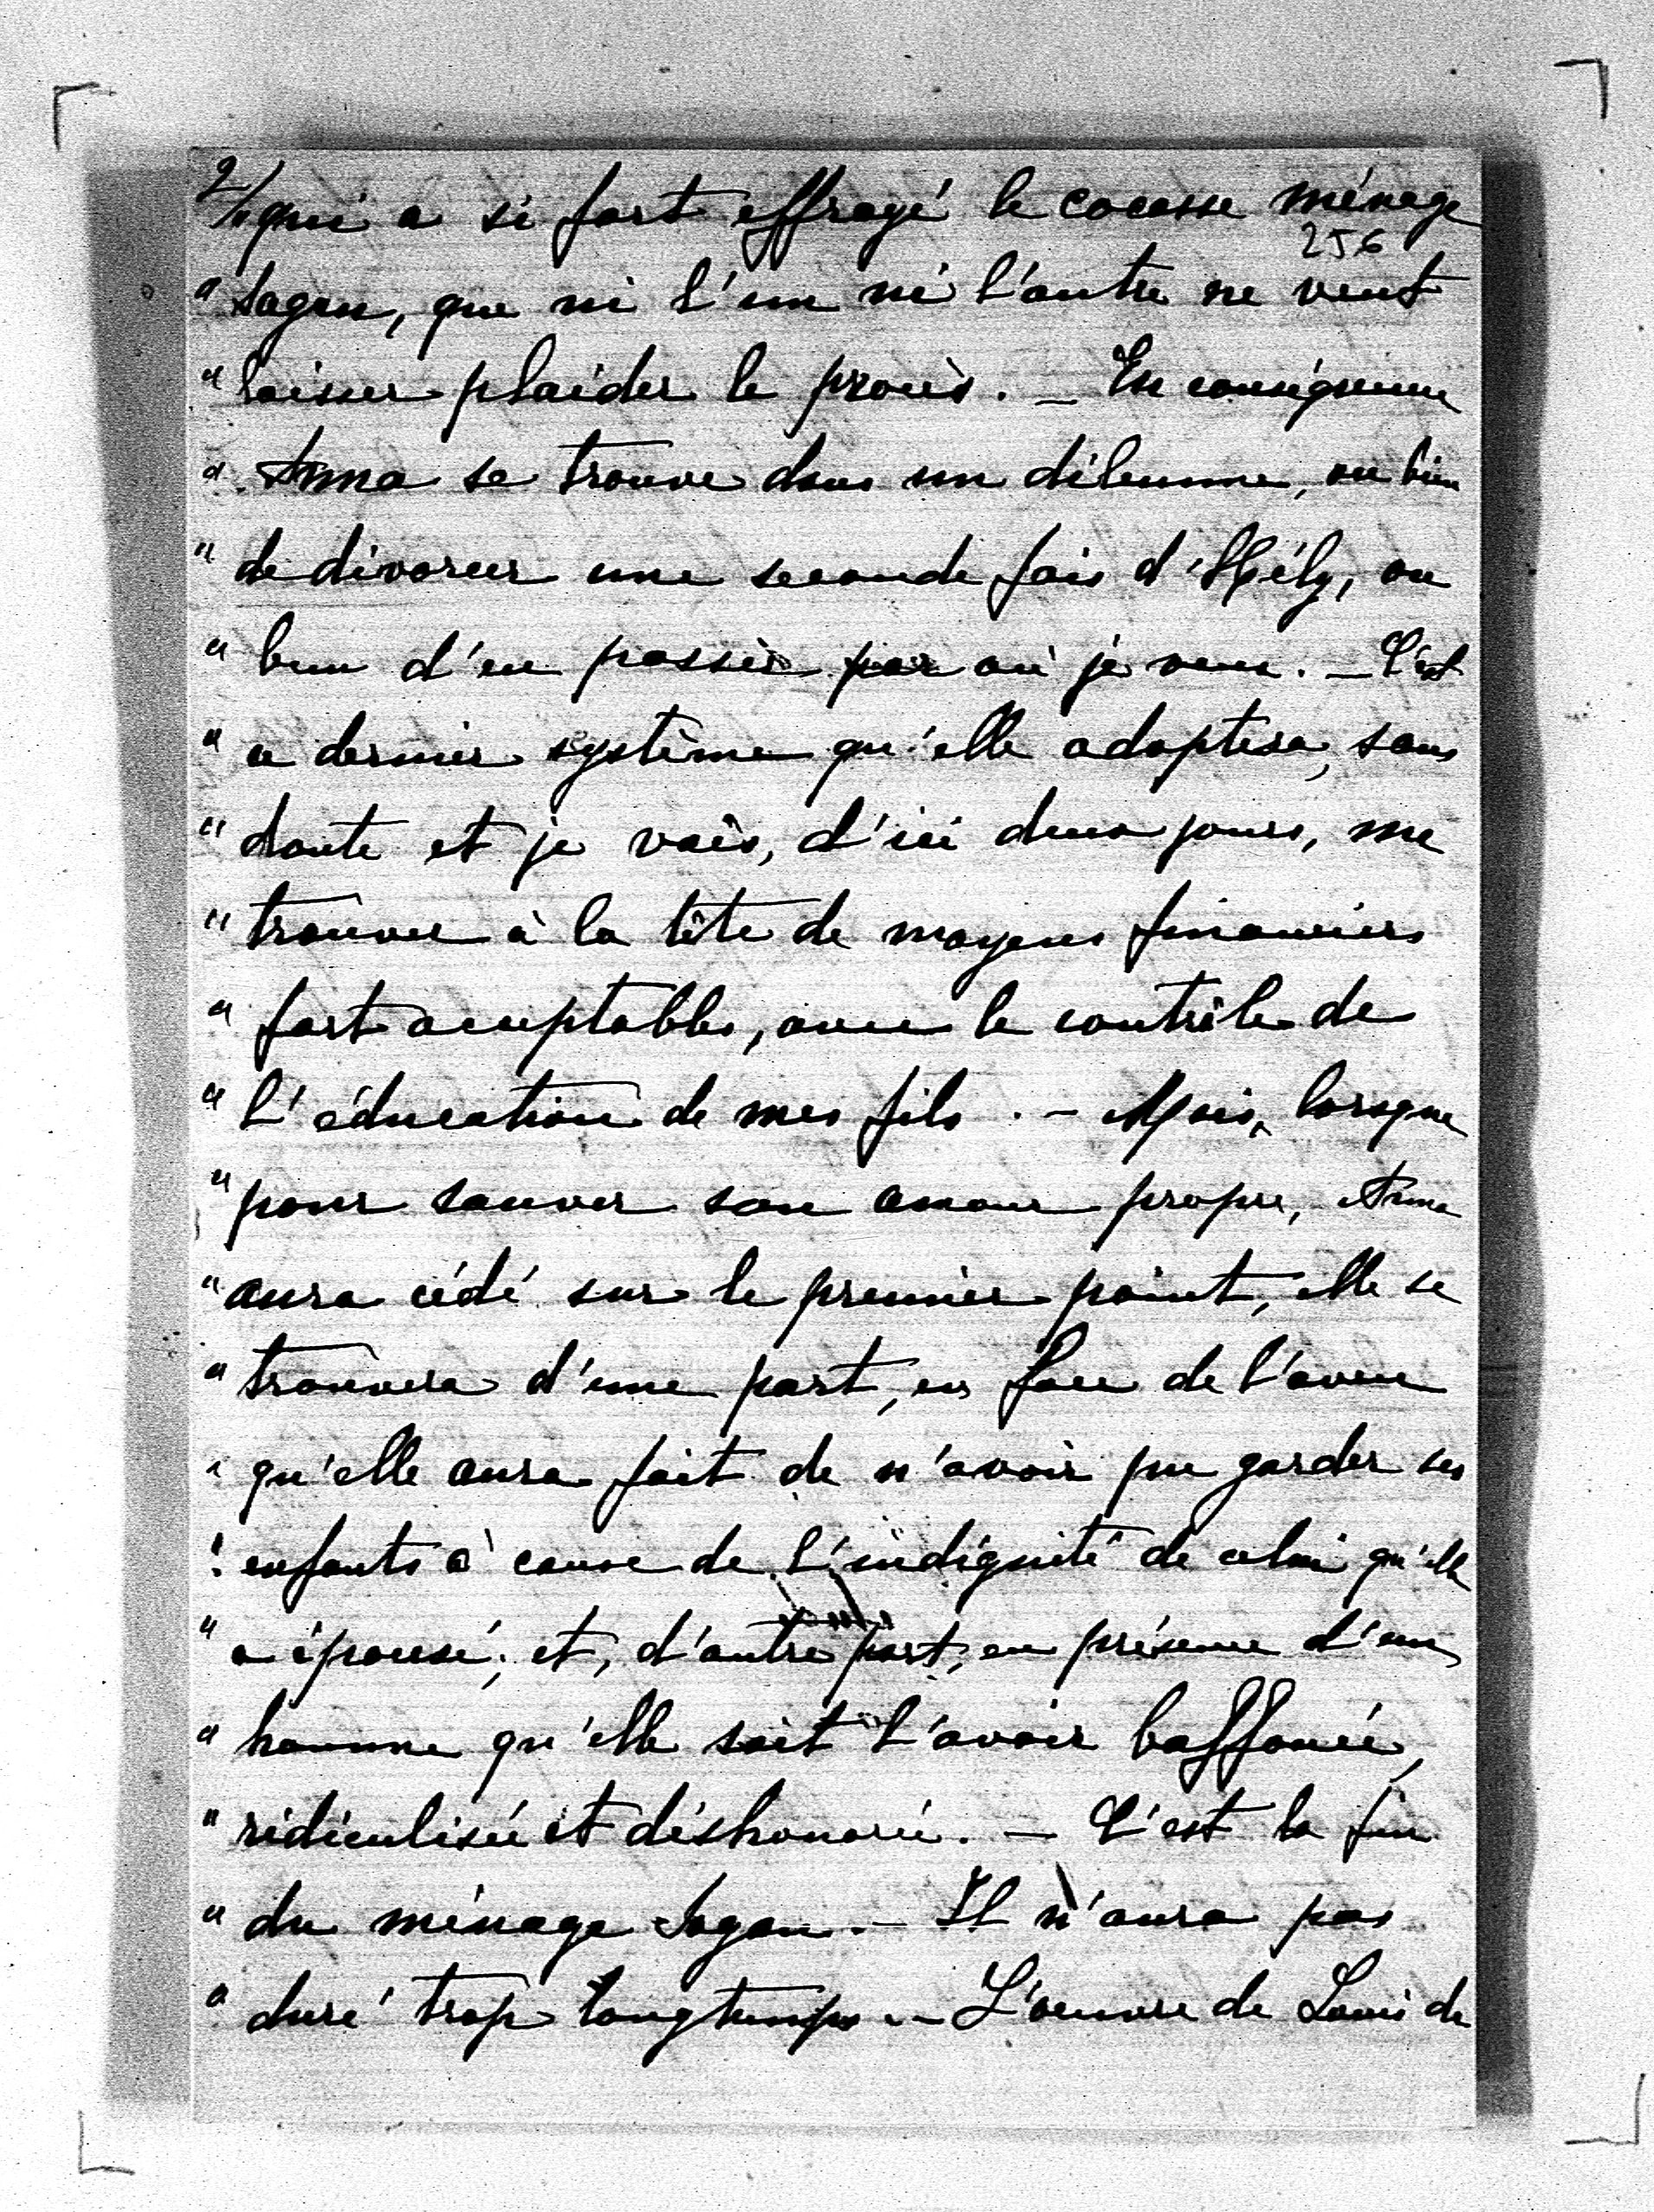 2/ " qui a si fort effrayé le cocasse ménage
256
" Sagan, que ni l'un ni l'autre ne veut
" laisser plaider le procès. _ En conséquence
" Anna se trouve dans un dilemme, ou bien
" de divorcer une seconde fois d'Hély, ou
" bien d'en passer par où je veux. _ C'est
" ce dernier système qu'elle adoptera, sans
" doute et je vais, d'ici deux jours, me
" trouver à la tête de moyens financiers
" fort acceptables, avec le contrôle de
" l'éducation de mes fils. - Mais, lorsque
" pour sauver son amour propre, Anna
" aura cédé sur le premier point, elle se
" trouvera d'une part, en face de l'aveu
" qu'elle aura fait de n'avoir pu garder ses
" enfants à cause de l'indignité de celui qu'elle
" a épousé; et, d'autre part, en présence d'un
" homme qu'elle sait l'avoir baffouée,
" ridiculisée et déshonorée. - C'est la fin
" du ménage Sagan. - Il n'aura pas
" duré trop longtemps. - L'oeuvre de Louis de